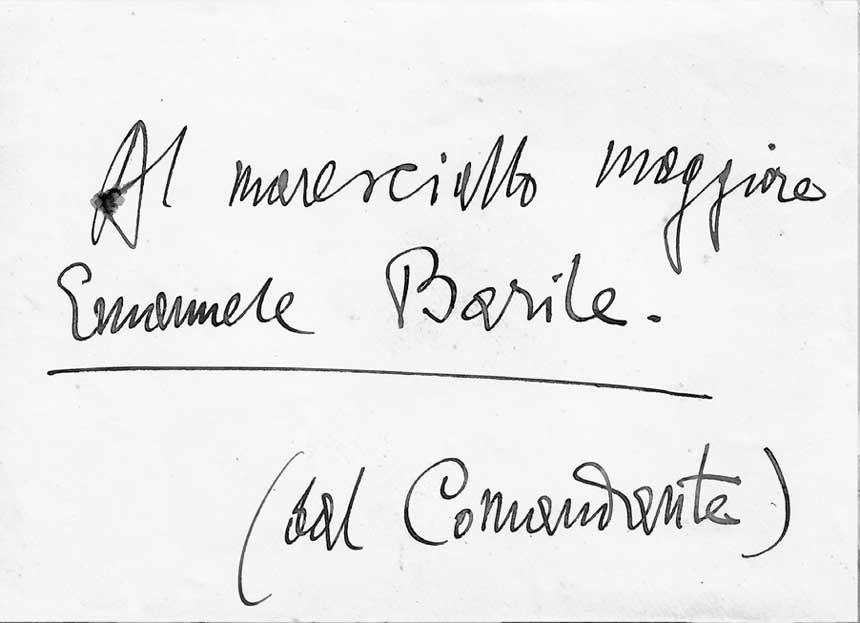 Al maresciallo maggiore
Emanuele Barile.
(dal Comandante)